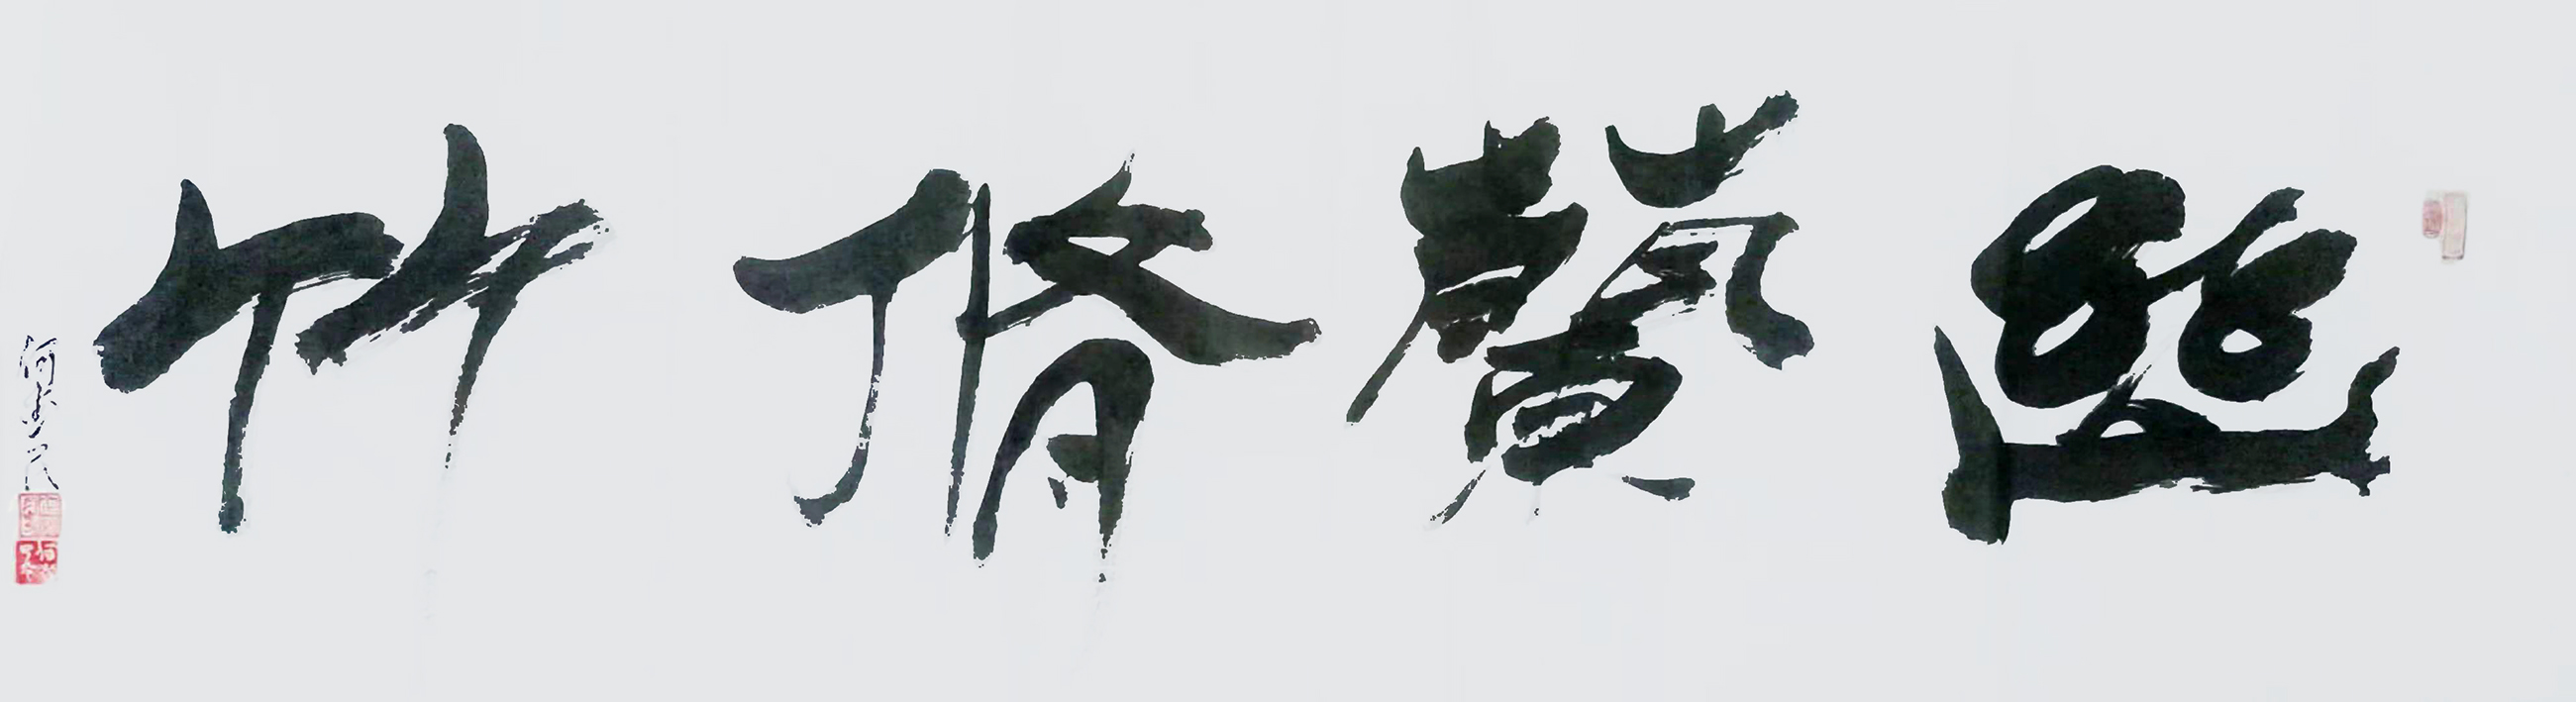 幽蘭脩竹